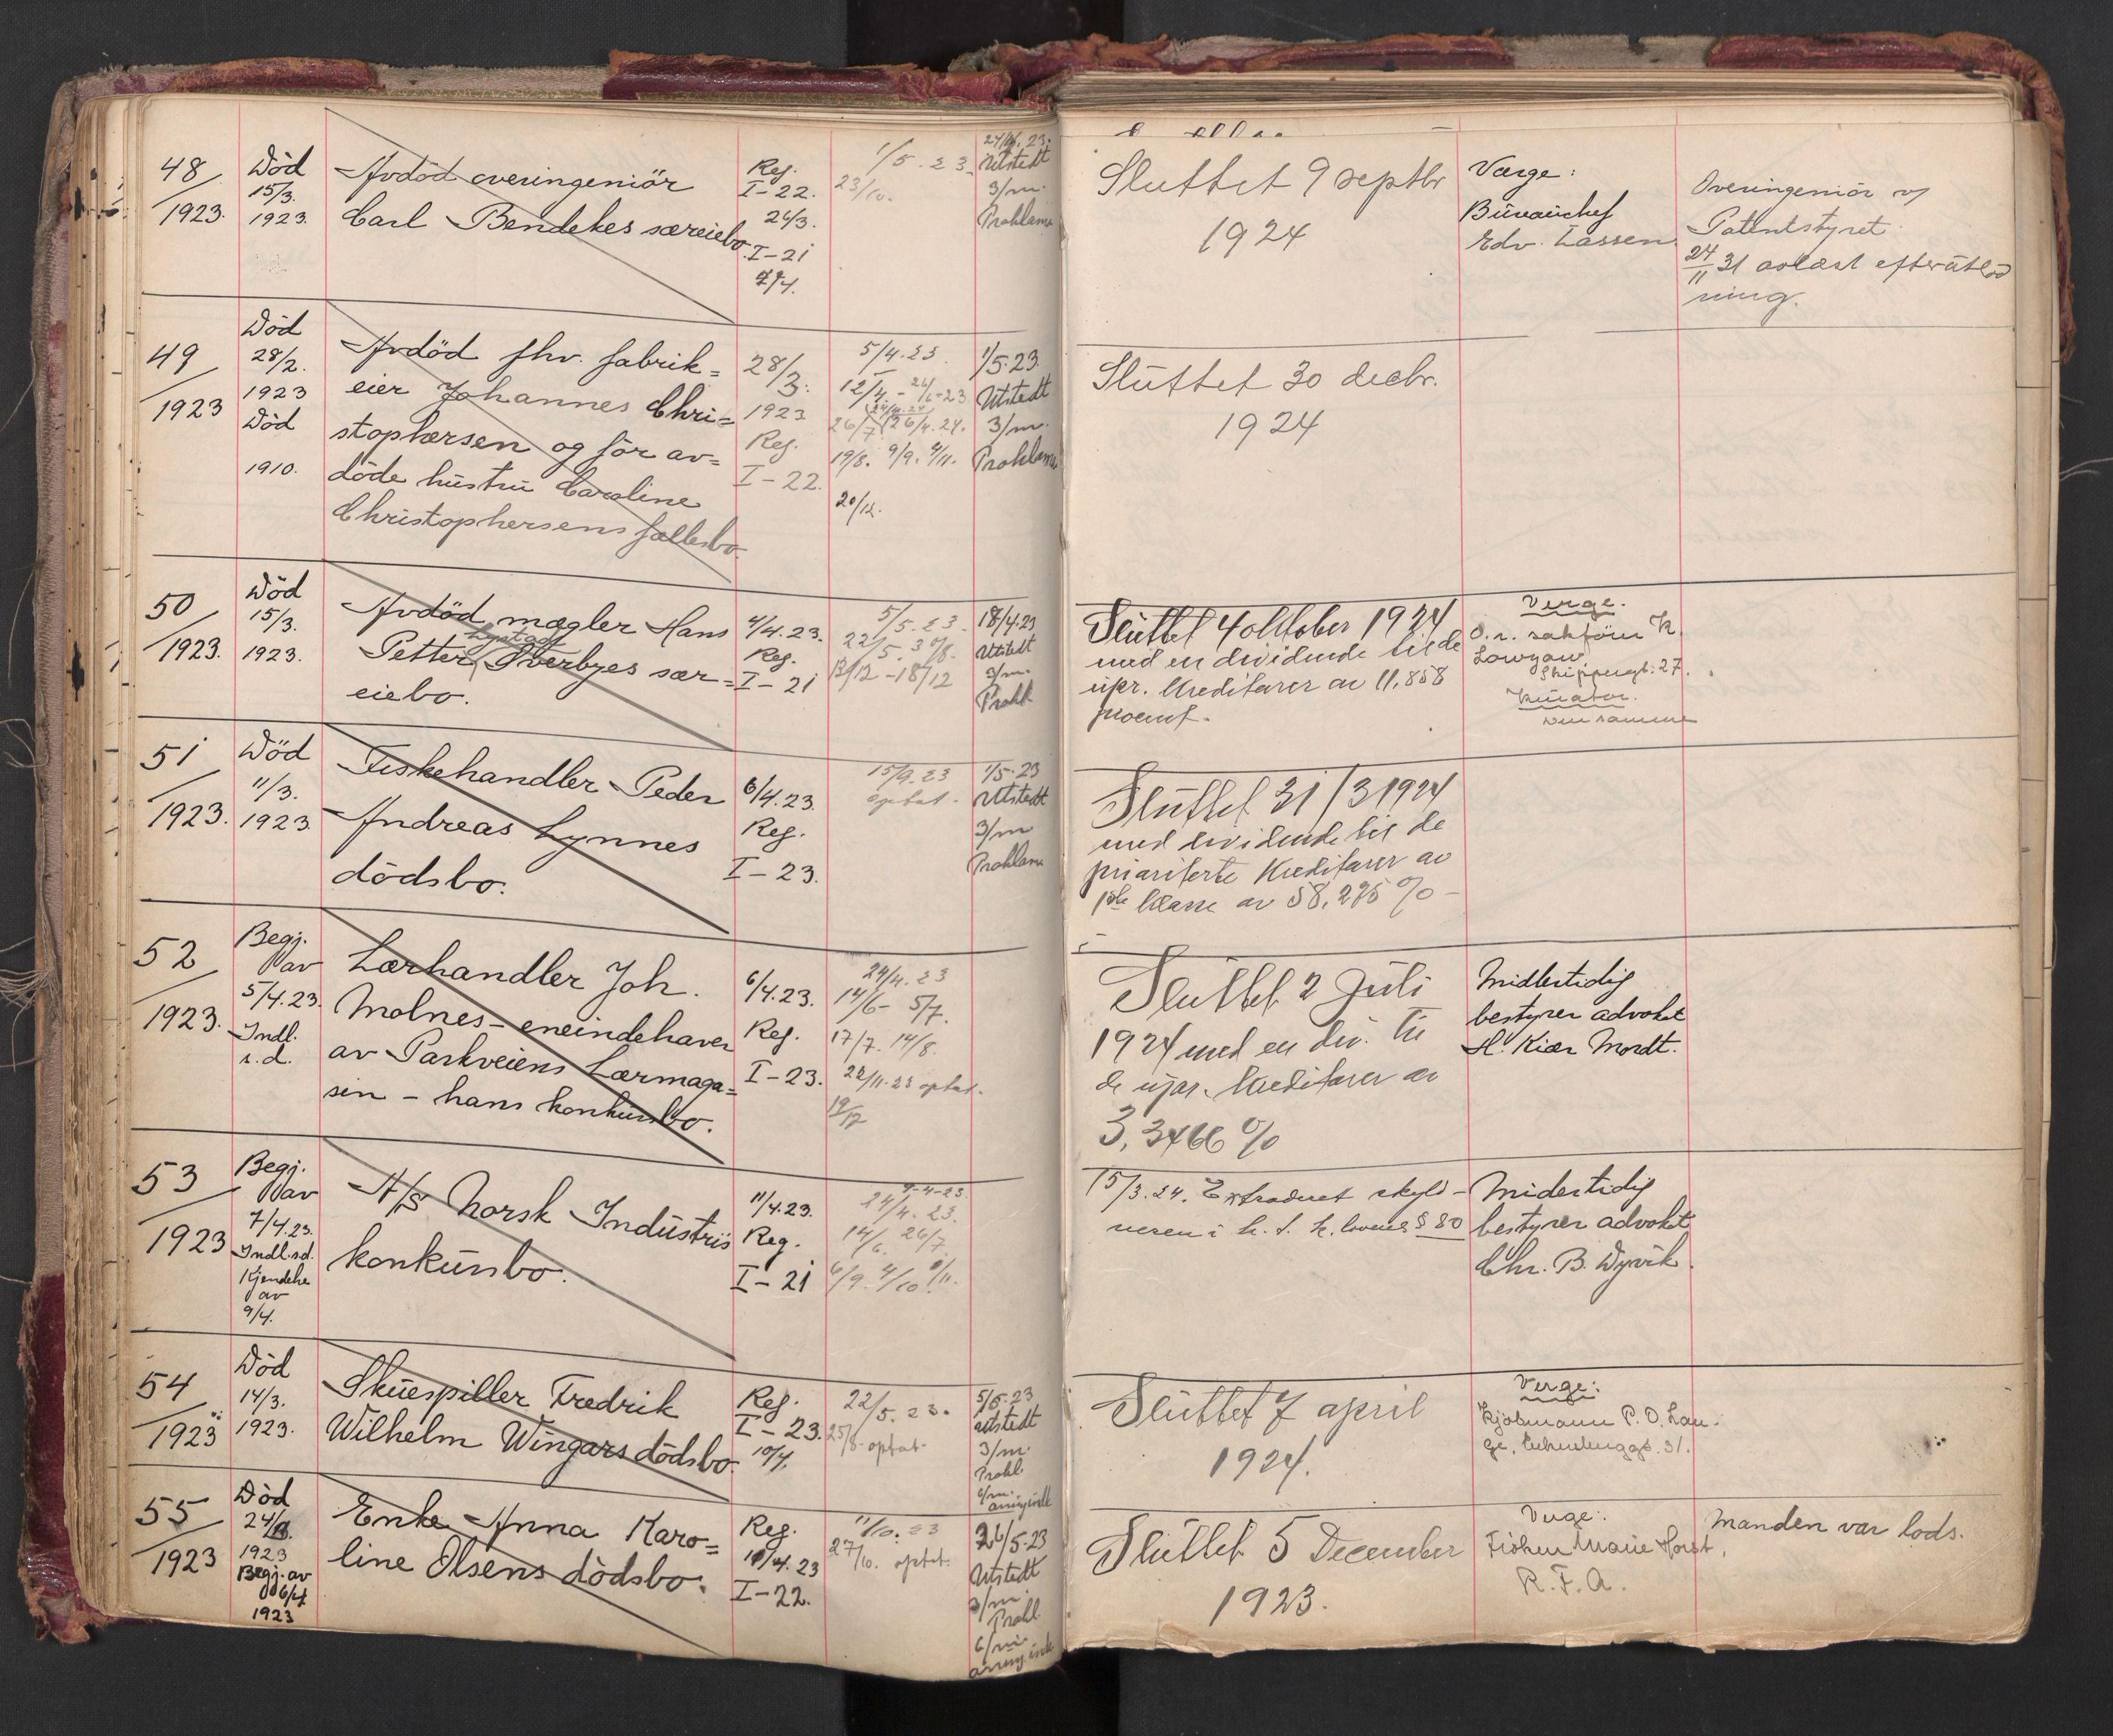 48
1923.
Död
15/3.
1923.
Avdöd overingeniör
Carl Bendekes særeiebo.
Reg.
I-22.
26/3.
I-21
7/4.
1/5. 23.
23/10.
Utstedt
3/m.
Proklama
Sluttet 9 septbr
1924
Værge:
Bureauchef
Edv. Lassen
Overingeniör v/
Patentstyret.
24/11 31 avlæst efterutlod
ning.
49
1923
Död
28/2.
1923
Död
1910.
Avdöd fhv. fabrik=
eier Johannes Chri=
stophersen og før av=
döde hustru Caroline
Christophersens fællesbo.
28/3.
1923
Reg.
I-22.
5/4.23
12/4.-26/6-23
26/7 26/4.24.
19/8. 9/9. 4/11.
20/12.
1/5.23.
Utstedt
3/m.
Proklama
Sluttet 30 decbr.
1924
50
1923.
Död
15/3.
1923.
Avdöd mægler Hans
Petter Lystad Överbyes sær=
eiebo.
4/4.23.
Reg.
I-21
5/5.23.
22/5. 30/8.
12/12-18/12
18/4.23
Utstedt
3/m.
Prokl.
Sluttet 4 oktober 1924
med en dividende til de
upr. kreditorer av 11,858
procent.
Verge.
O.r. sakförer K.
Lowzow
Skippergt. 27.
Kurator.
Den samme
51
1923.
Död
11/3.
1923.
Fiskehandler Peder
Andreas Lynnes
dödsbo.
6/4.23.
Reg.
I-23.
15/9.23
optat.
1/5.23
Utstedt
3/m
Proklama
Sluttet 31/3 1924
med dividende til de
prioriterte kreditorer av
1ste klasse av 58,275 %
52
1923.
Begj.
av
5/4.23.
Indl.
s.d.
Lærhandler Joh.
Molnes - eneindehaver
av Parkveiens Lærmaga=
sin - hans konkursbo.
6/4.23.
Reg.
I-23.
24/4.23
14/6- 5/7.
17/7. 14/8.
22/11.23 optat.
19/12
Sluttet 2 Juli
1924 med en div. til
de upr. kreditorer av
3,3466 %
Midlertidig
bestyrer advokat
H. Kiær Mordt.
53
1923
Begj.
av
7/4.23.
Indl.s.d.
Kjendelse
av
9/4.
A/S Norsk Industris
konkursbo.
11/4.23.
Reg.
I-21
9-4-23.
24/4.23.
14/6. 26/7.
6/9. 4/10. 8/11.
15/3.24. Extraderet skyld-
neren i h. t. k. lovens § 80
Midertidig
bestyrer advokat
Chr. B. Dyvik.
54
1923
Död
14/3.
1923.
Skuespiller Fredrik
Wilhelm Wingars dödsbo.
Reg.
I-23.
10/4.
22/5.23.
25/8. optat.
5/5.23
utstedt
3/m.
Prokl.
Sluttet 7 april
1924.
Verge:
Kjöbmann P. O. Lan-
ge,
55
1923
Död
1923
Begj. av
6/4
1923
Enke Anna Karo=
line Olsens dödsbo.
Reg.
10/4.23
I-22.
11/10.23
27/10. optat.
26/5.23
Utstedt
3/m
Prokl.
6/m.
Sluttet 5 December
1923.
Verge:
Fröken Marie Horst,
R. F. A.
Manden var lods.